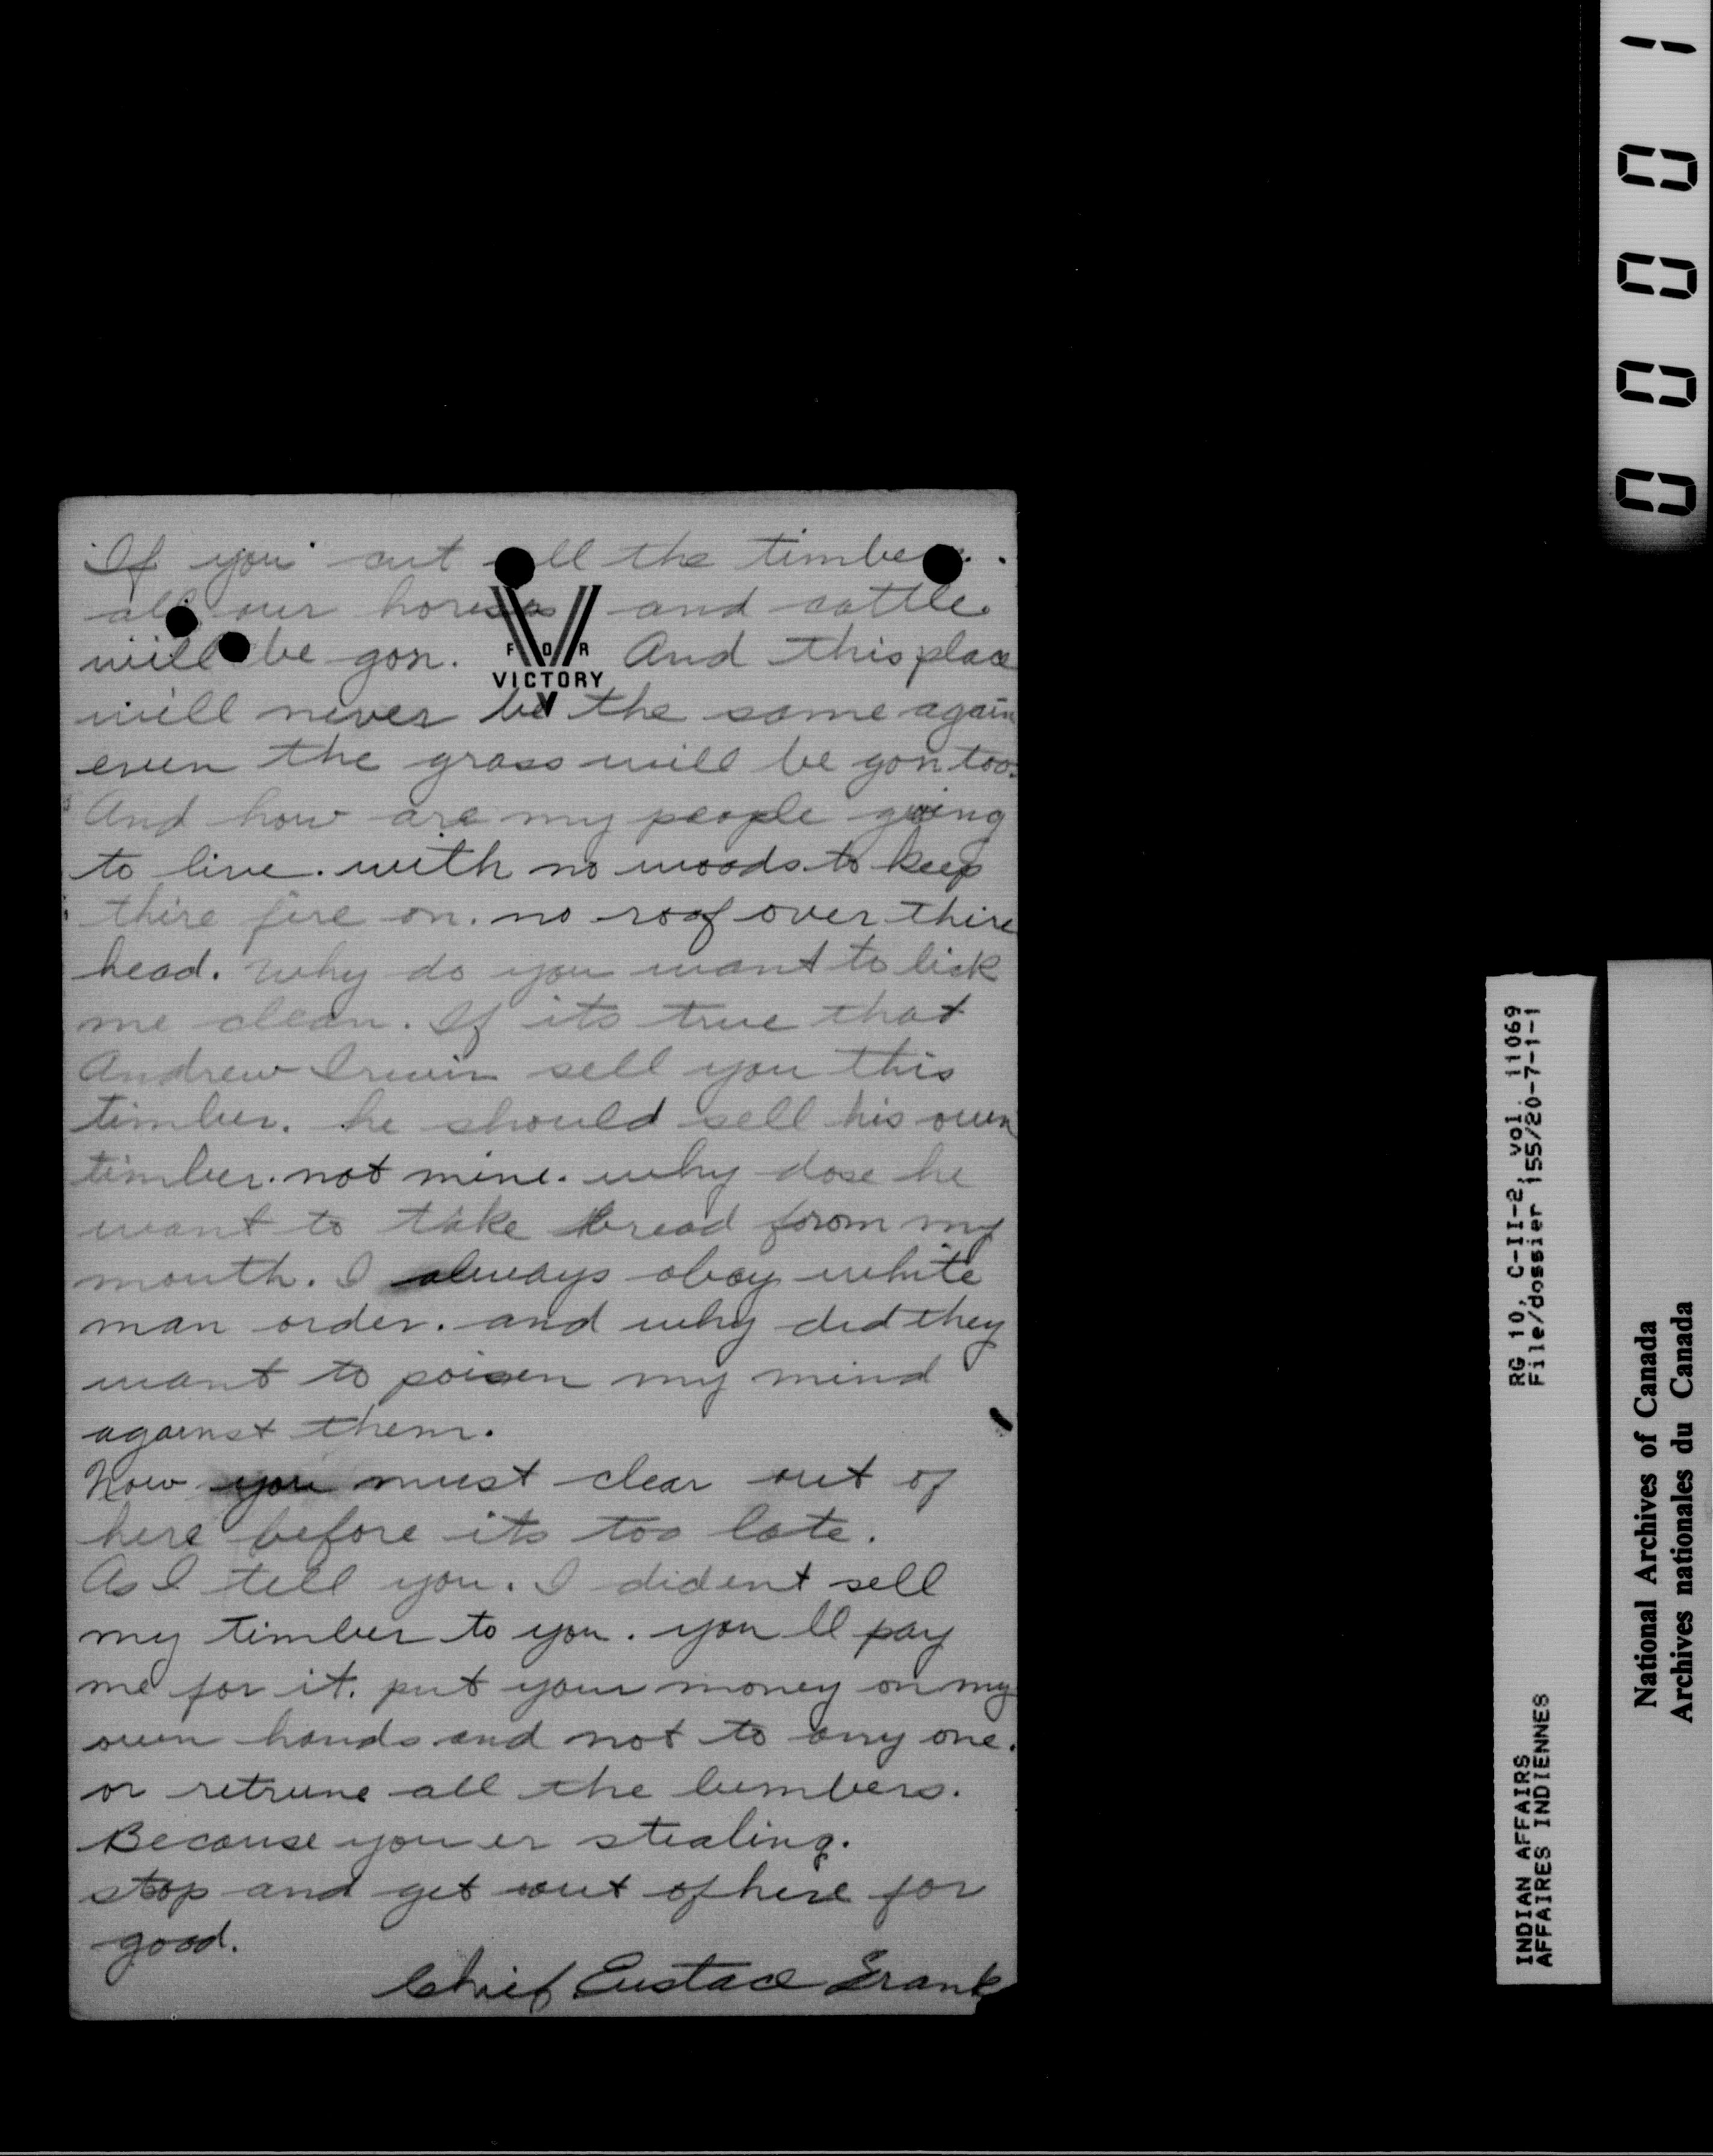 If you cut all the timber.
all our horses and cattle
will be gon. And this place
V
FOR
VICTORY
will never be the same again
even the grass will be gon too.
And how are my people going
to live. with no woods to keep
thire fire on. no roof over thire
head. Why do you want to lick
me clean. If its true that
Andrew Irwin sell you this
timber. he should sell his own
timber. not mine. why dose he
want to take bread forom my
mouth. I always obay white
man order. and why did they
want to poisen my mind
against them.
Now you must clear out of
here before its too late.
As I tell you. I dident sell
my timber to you. you ll pay
me for it. put your money on my
own hands and not to any one.
or retrune all the lumbers.
Because you er stealing.
stop and get out of here for
good.
Chief Eustace Frank
00001
RG 10, C-II-2, vol. 11069
File/dossier 155/20-7-1-1
INDIAN AFFAIRS
AFFAIRES INDIENNES
National Archives of Canada
Archives nationales du Canada